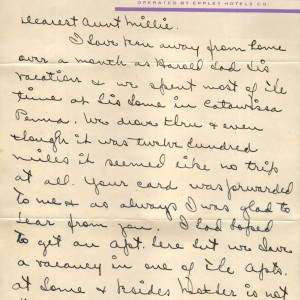 OPERATED BY EPPLEY HOTELS CO.
Dearest Aunt Millie.
I have been away from home
over a month as Harold had his
vacation & we spent most of the
time at his home in Catawissa
Penna. We drove thru & even
though it was twelve hundred
miles it seemed like no trip
at all. Your card was forwarded
to me & as always I was glad to
hear from you. I had hoped
to get an apt. here but we have
a vacancy in one of the apts.
at home & besides Mother is not